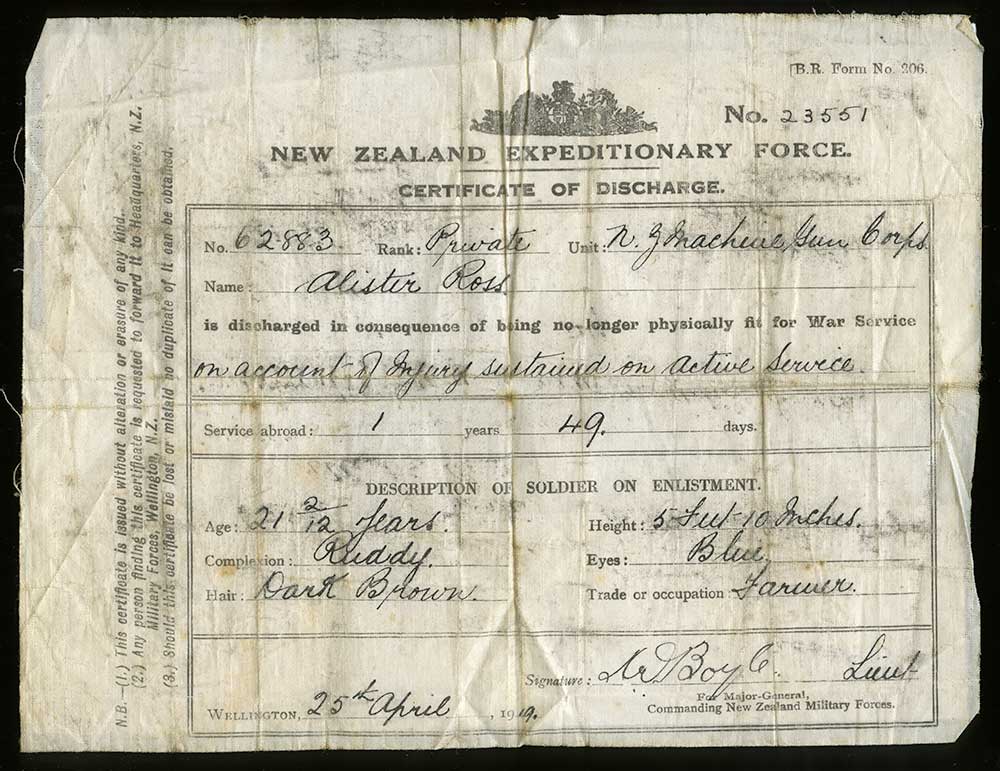 B.R. Form No. 206.
No. 23551
NEW ZEALAND EXPEDITIONARY FORCE.
CERTIFICATE OF DISCHARGE.
No. 62883 Rank: Private Unit: N. Z Machine Gun Corps.
Name: Alister Ross
is discharged in consequence of being no longer physically fit for War Service
on account of Injury sustained on Active Service.
Service abroad: 1 years 49. days.
DESCRIPTION OF SOLDIER ON ENLISTMENT.
Age: 21 2/12 Years. Height: 5 Feet 10 Inches.
Complexion: Ruddy. Eyes: Blue
Hair: Dark Brown. Trade or occupation Farmer.
Signature: Boy Lieut
For Major-General,
Commanding New Zealand Military Forces.
WELLINGTON, 25th April, 1919.
N.B.—(1.) This certificate is issued without alteration or erasure of any kind.
(2.) Any person finding this certificate is requested to forward it to Headquarters, N.Z.
Military Forces, Wellington, N.Z.
(3.) Should this certificate be lost or mislaid no duplicate of it can be obtained.